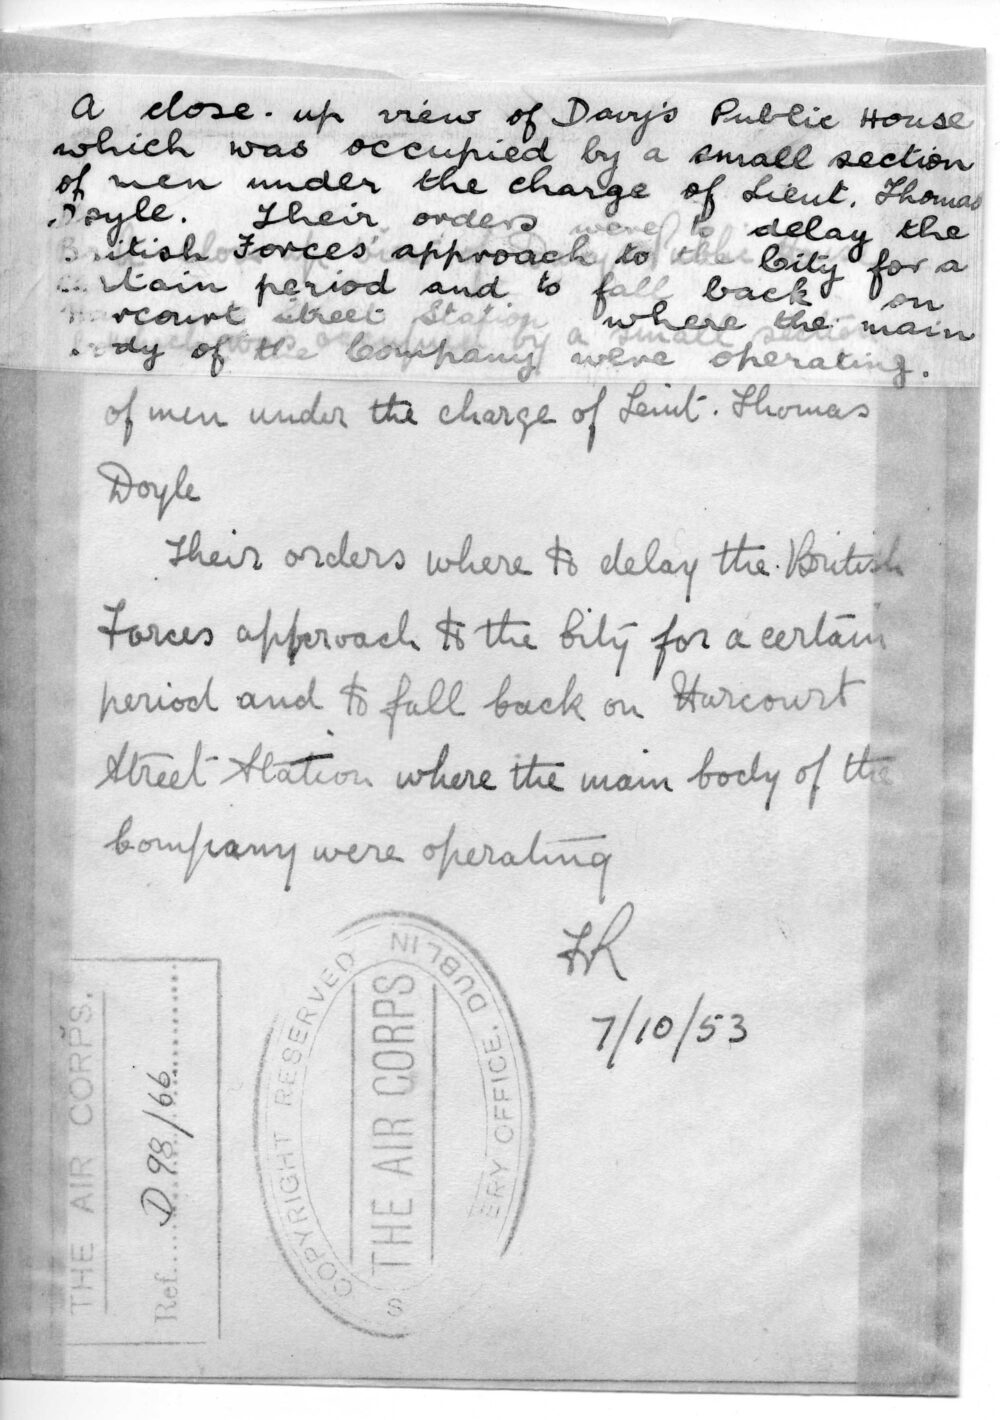 A close-up view of Davy's Public House
which was occupied by a small section
of men under the charge of Lieut. Thomas
Doyle. Their orders were to delay the
British Forces approach to the City for a
certain period and to fall back on
Harcourt Street Station where the main
body of the Company were operating.
of men under the charge of Leiut. Thomas
Doyle
Their orders where to delay the British
Forces approach to the City for a certain
period and to fall back on Harcourt
Street Station where the main body of the
Company were operating
7/10/53
THE AIR CORPS.
Ref. D 98/66
COPYRIGHT RESERVED
THE AIR CORPS
ERY OFFICE, DUBLIN